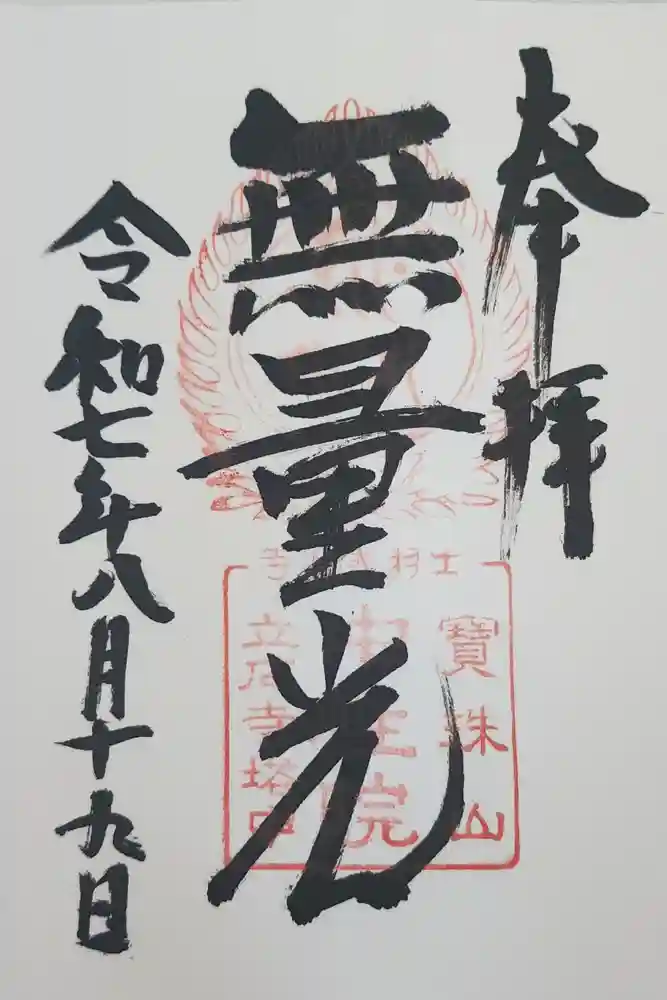 奉拝
無量光
寶珠山
立石寺塔中
令和七年八月十九日